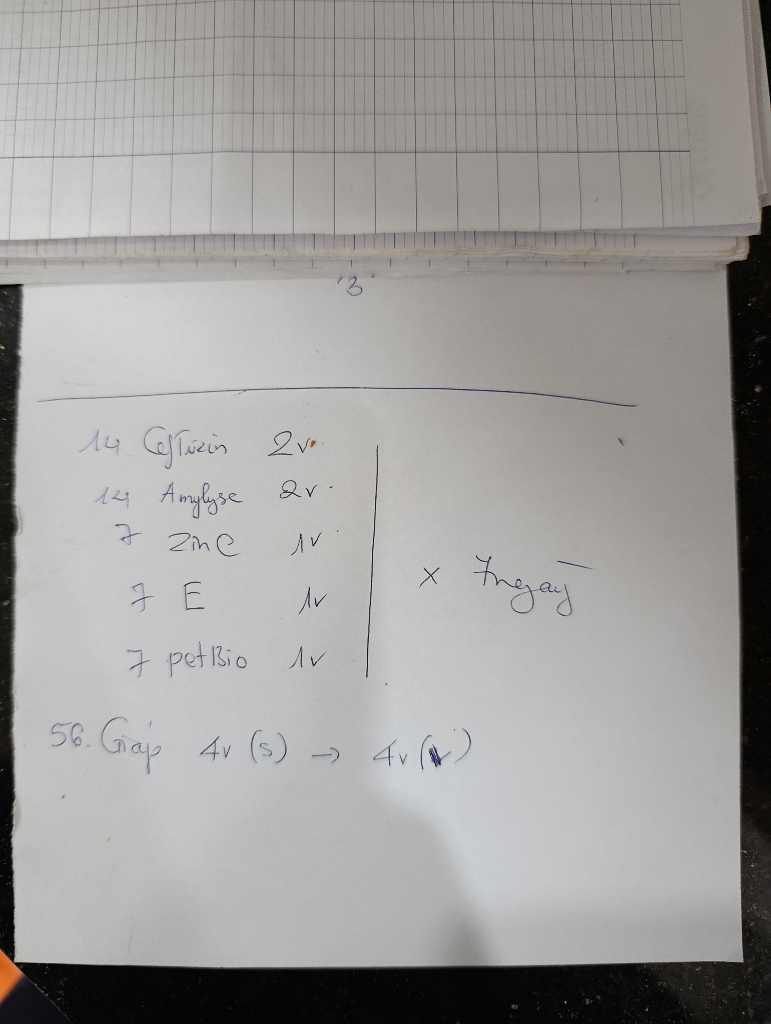 3
14 Ceftizin 2v
14 Amylyse 2v
7 ZinC 1v
7 E 1v
7 petBio 1v
x 7ngày
56. Giáp 4v (s) → 4v ( )